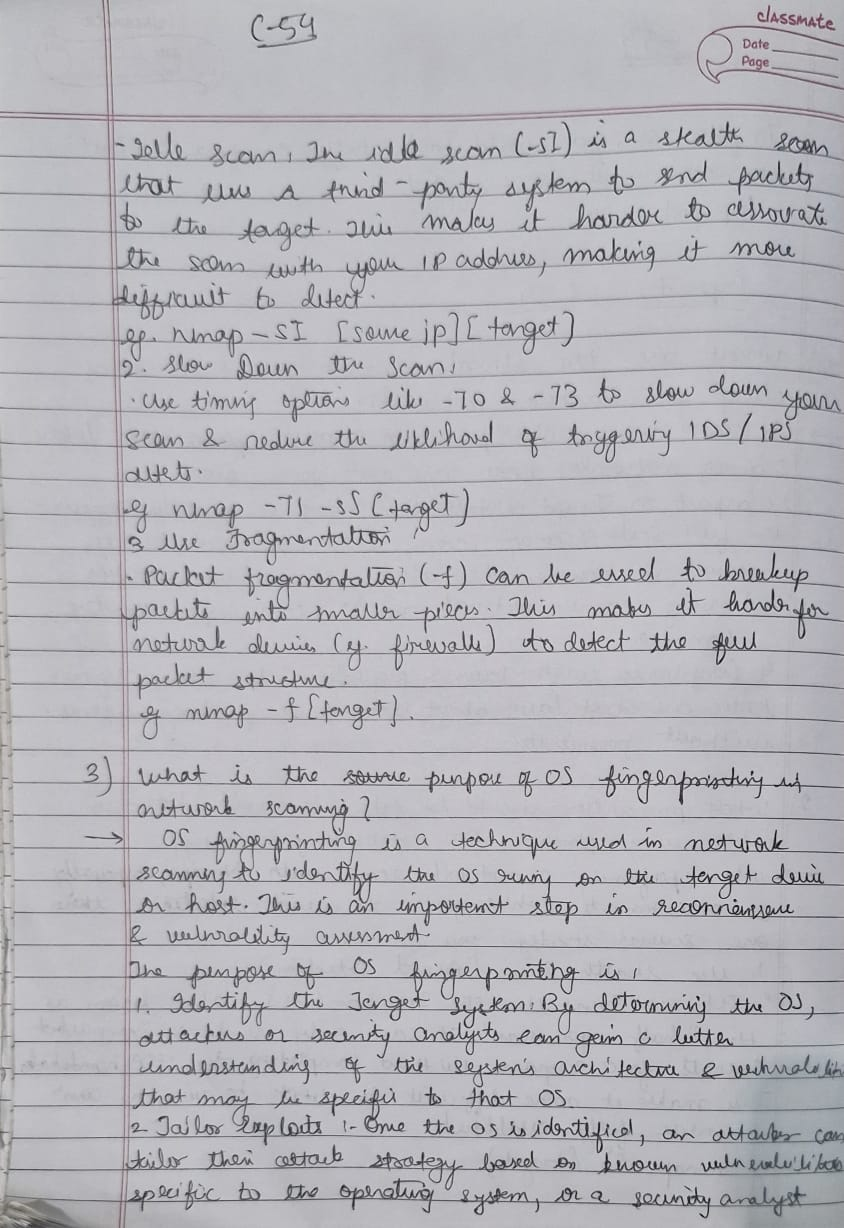 C-54
classmate
Date
Page
- Idle scan, The idle scan (-sI) is a stealth scan
that uses a third-party system to send packets
to the target. This makes it harder to associate
the scan with your IP address, making it more
difficult to detect.
eg. nmap -sI [some ip] [target]
2. Slow Down the Scan:
· Use timing options like -T0 & -T3 to slow down your
scan & reduce the liklihood of triggering IDS/IPS
alerts.
eg nmap -T1 -sS [target]
3 Use Fragmentation
· Packet fragmentation (-f) can be used to breakup
packets into smaller pieces. This makes it harder for
network devices (eg. firewalls) to detect the full
packet structure.
eg nmap -f [target].
3) What is the purpose of OS fingerprinting in
network scanning?
→ OS fingerprinting is a technique used in network
scanning to identify the OS runing on the target device
or host. This is an important step in
& vulnrability assessment.
The purpose of OS fingerprinting is:
1. Identify the Target System: By determining the OS,
attackers or security analysts can gain a better
understanding of the system's architecture &
that may be specific to that OS.
2 Tailor Exploits :- Once the OS is identified, an attacker can
tailor their attack strategy based on known
specific to the operating system, or a security analyst